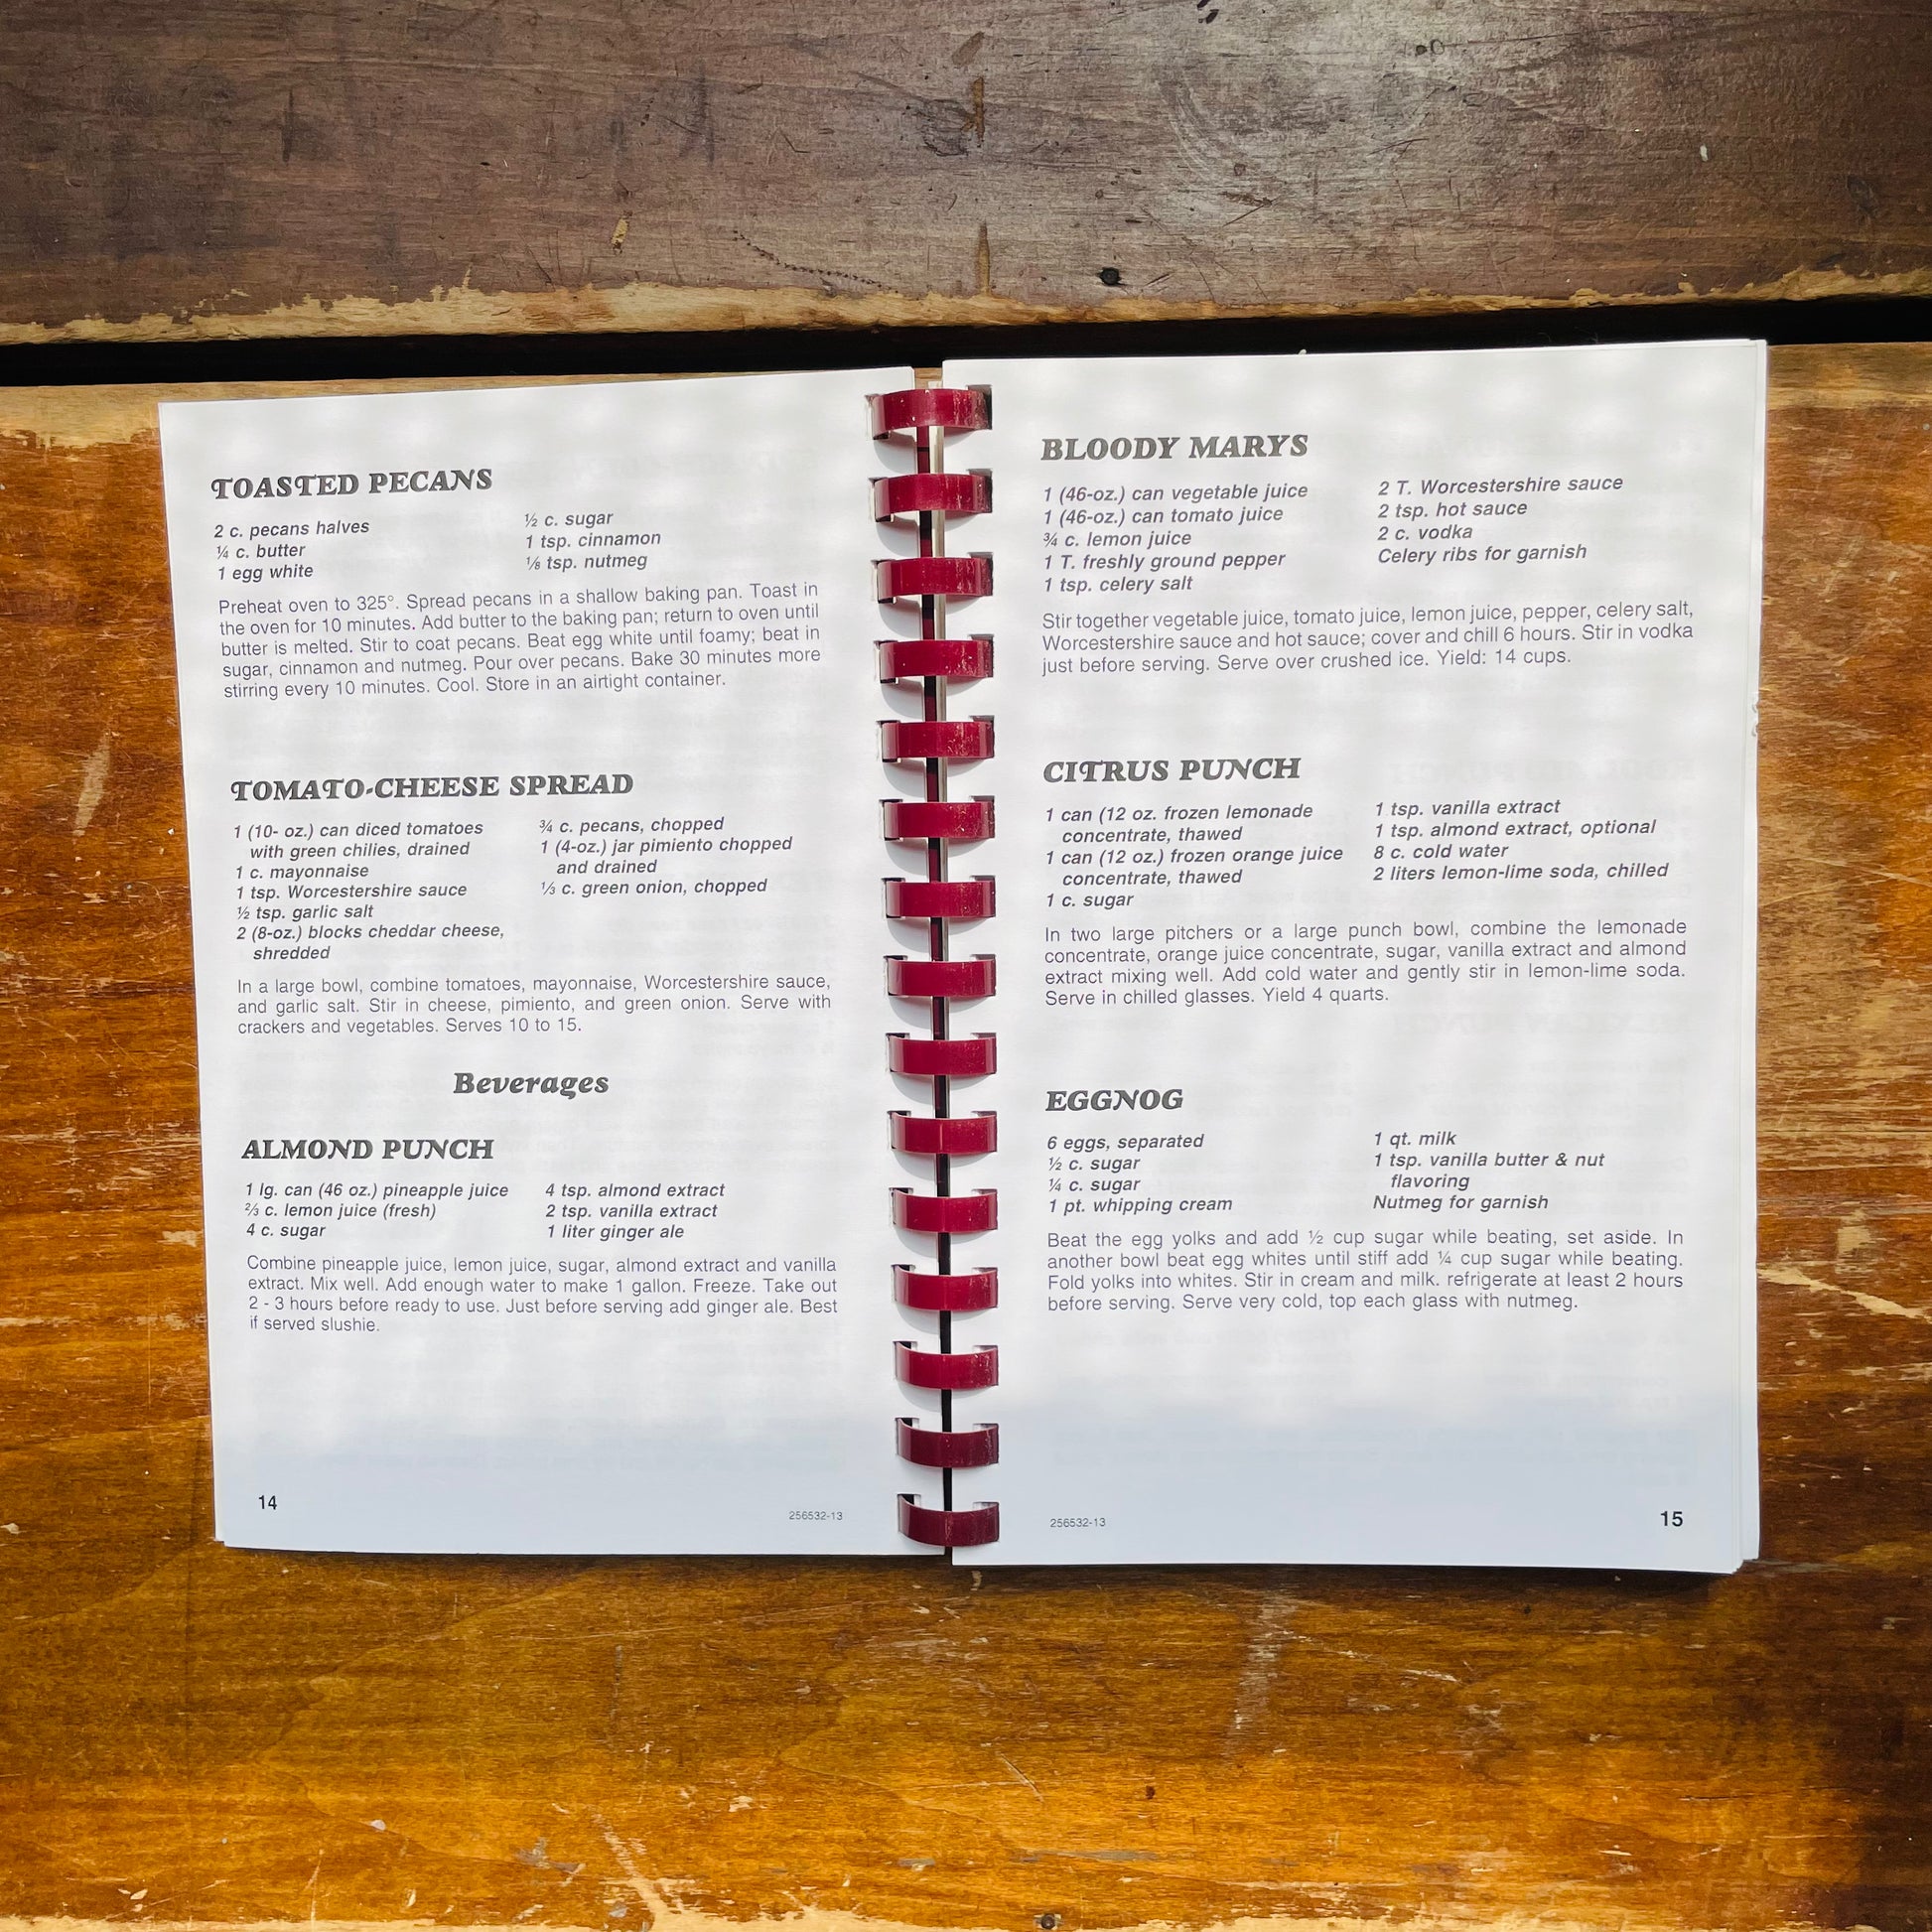 TOASTED PECANS
2 c. pecans halves
¼ c. butter
1 egg white
½ c. sugar
1 tsp. cinnamon
⅛ tsp. nutmeg
Preheat oven to 325°. Spread pecans in a shallow baking pan. Toast in
the oven for 10 minutes. Add butter to the baking pan; return to oven until
butter is melted. Stir to coat pecans. Beat egg white until foamy; beat in
sugar, cinnamon and nutmeg. Pour over pecans. Bake 30 minutes more
stirring every 10 minutes. Cool. Store in an airtight container.
TOMATO-CHEESE SPREAD
1 (10- oz.) can diced tomatoes
with green chilies, drained
1 c. mayonnaise
1 tsp. Worcestershire sauce
½ tsp. garlic salt
2 (8-oz.) blocks cheddar cheese,
shredded
¾ c. pecans, chopped
1 (4-oz.) jar pimiento chopped
and drained
⅓ c. green onion, chopped
In a large bowl, combine tomatoes, mayonnaise, Worcestershire sauce,
and garlic salt. Stir in cheese, pimiento, and green onion. Serve with
crackers and vegetables. Serves 10 to 15.
Beverages
ALMOND PUNCH
1 lg. can (46 oz.) pineapple juice
⅔ c. lemon juice (fresh)
4 c. sugar
4 tsp. almond extract
2 tsp. vanilla extract
1 liter ginger ale
Combine pineapple juice, lemon juice, sugar, almond extract and vanilla
extract. Mix well. Add enough water to make 1 gallon. Freeze. Take out
2 - 3 hours before ready to use. Just before serving add ginger ale. Best
if served slushie.
14
256532-13
BLOODY MARYS
1 (46-oz.) can vegetable juice
1 (46-oz.) can tomato juice
¾ c. lemon juice
1 T. freshly ground pepper
1 tsp. celery salt
2 T. Worcestershire sauce
2 tsp. hot sauce
2 c. vodka
Celery ribs for garnish
Stir together vegetable juice, tomato juice, lemon juice, pepper, celery salt,
Worcestershire sauce and hot sauce; cover and chill 6 hours. Stir in vodka
just before serving. Serve over crushed ice. Yield: 14 cups.
CITRUS PUNCH
1 can (12 oz. frozen lemonade
concentrate, thawed
1 can (12 oz.) frozen orange juice
concentrate, thawed
1 c. sugar
1 tsp. vanilla extract
1 tsp. almond extract, optional
8 c. cold water
2 liters lemon-lime soda, chilled
In two large pitchers or a large punch bowl, combine the lemonade
concentrate, orange juice concentrate, sugar, vanilla extract and almond
extract mixing well. Add cold water and gently stir in lemon-lime soda.
Serve in chilled glasses. Yield 4 quarts.
EGGNOG
6 eggs, separated
½ c. sugar
¼ c. sugar
1 pt. whipping cream
1 qt. milk
1 tsp. vanilla butter & nut
flavoring
Nutmeg for garnish
Beat the egg yolks and add ½ cup sugar while beating, set aside. In
another bowl beat egg whites until stiff add ¼ cup sugar while beating.
Fold yolks into whites. Stir in cream and milk. refrigerate at least 2 hours
before serving. Serve very cold, top each glass with nutmeg.
256532-13
15